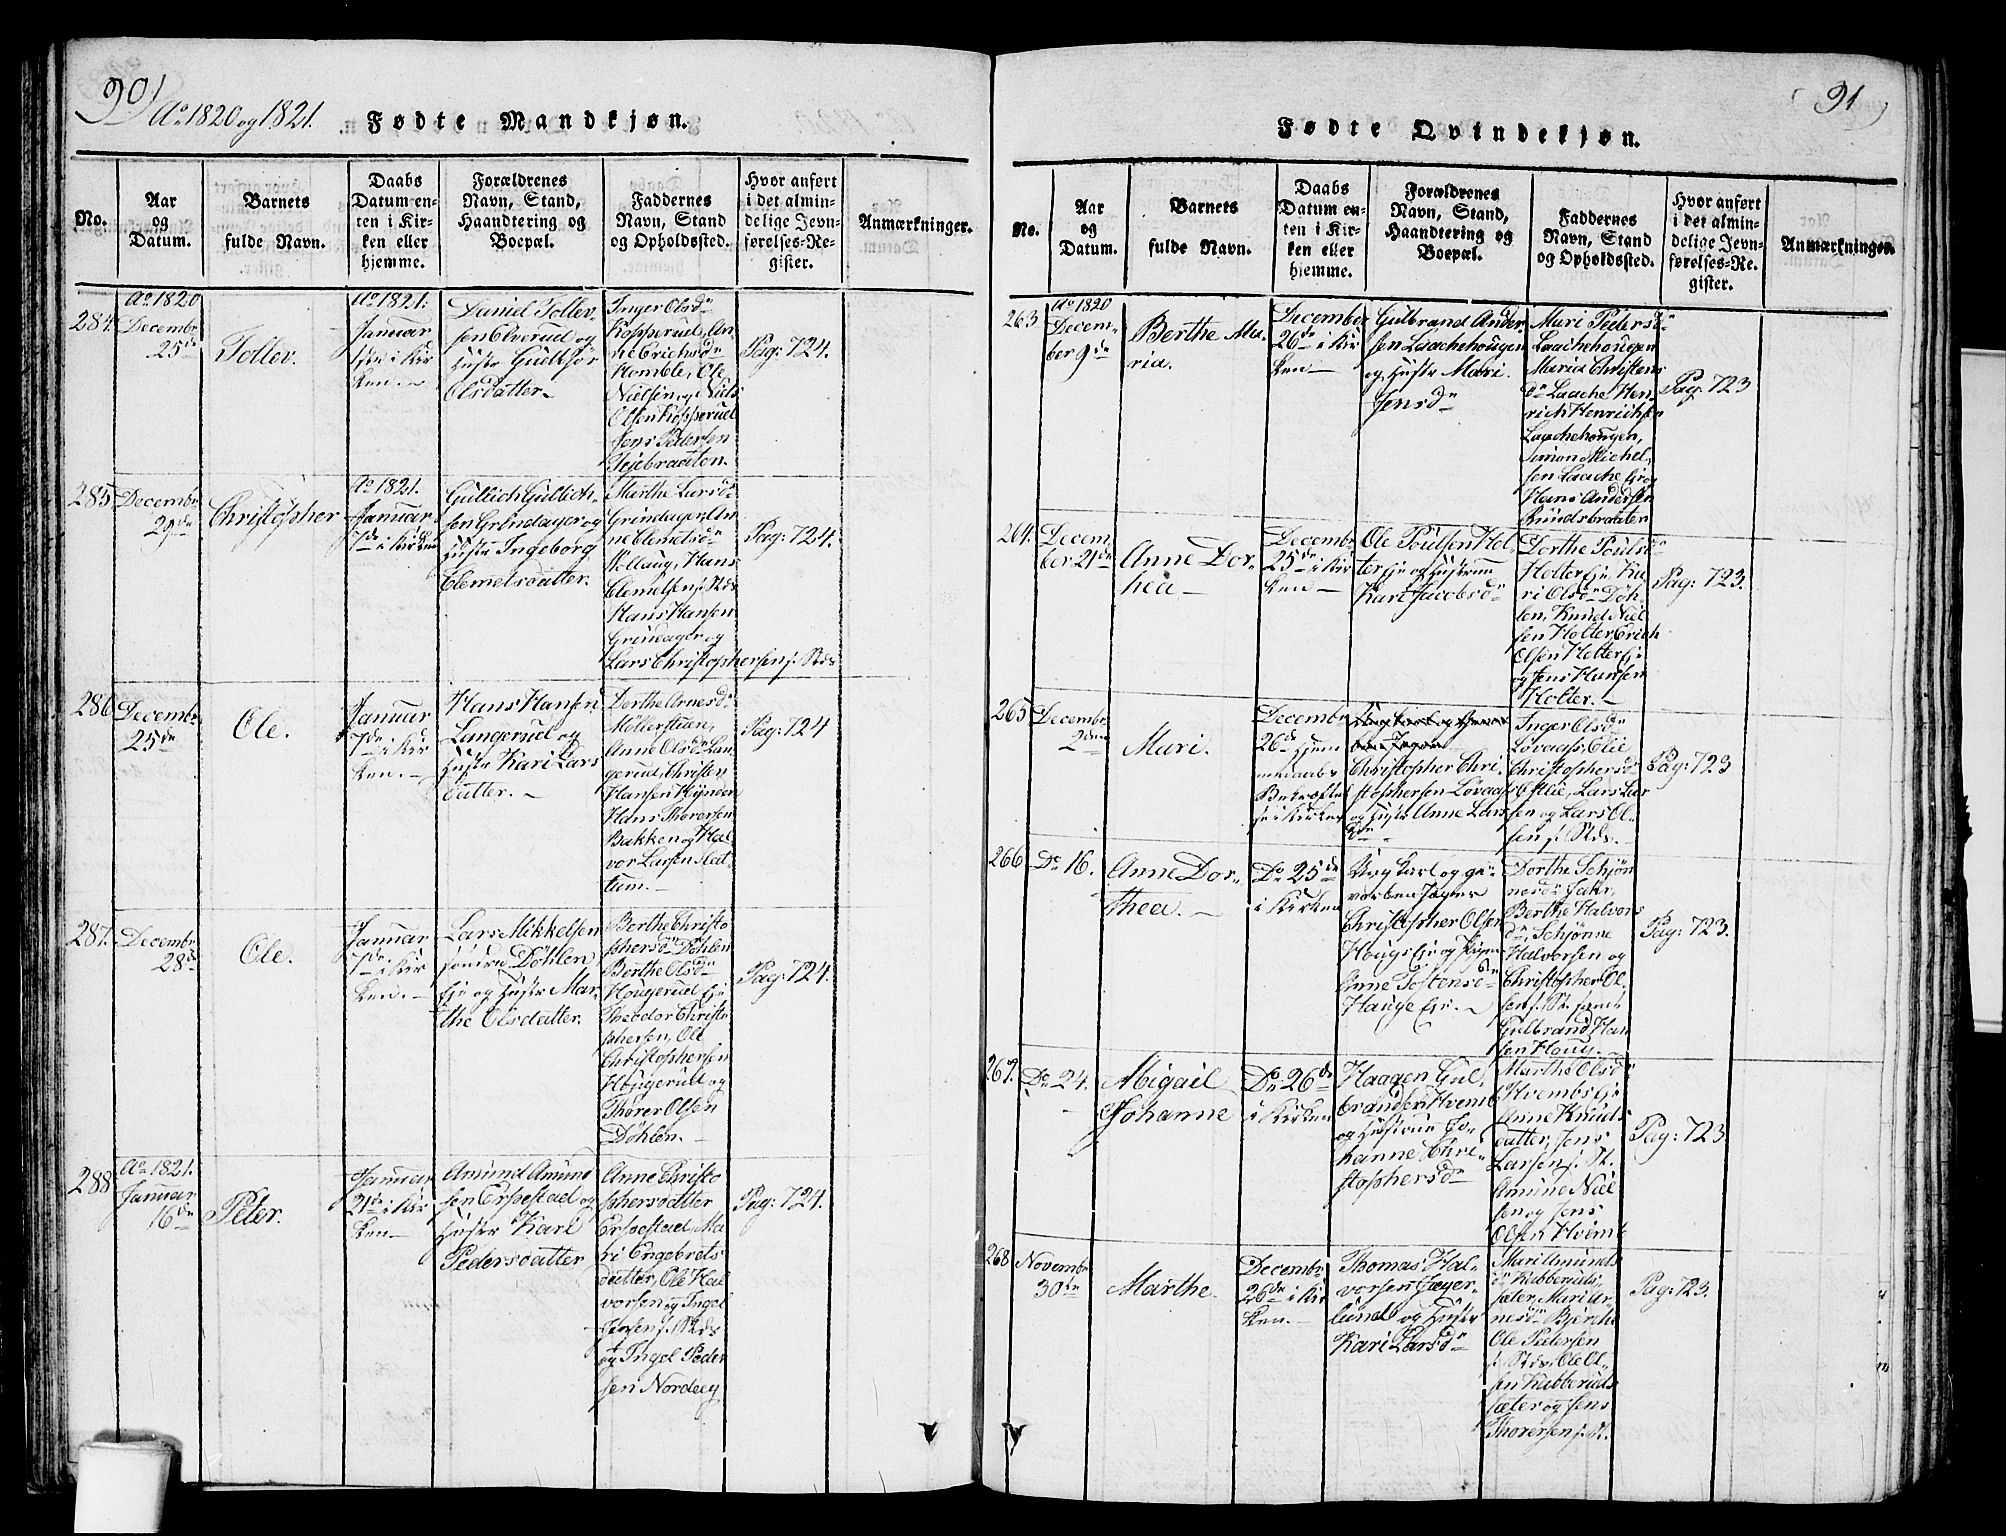 90
Ao 1820 og 1821.
Fødte Mandkjøn.
No.
Aar
og
Datum.
Barnets
fulde Navn.
Daabs
Datum en-
ten i Kir-
ken eller
hjemme.
Forældrenes
Navn, Stand,
Haandtering og
Boepæl.
Faddernes
Navn, Stand
og Opholdssted.
Hvor anført
i det almin-
delige Jevn-
førelses-Re-
gister.
Anmærkninger.
284.
Ao 1820
Decembr
25de
Tollev.
Ao 1821:
Januar
i Kir
ken.
Daniel Tollev-
sen Elverud og
Hustr Gudthor
Olsdatter.
Inger Olsdr
Kopperud, An-
ne Erichsdr
Homble, Ole
Nielsen og Niels
Olsen Kopperud
Jens Pedersen
Teiebraaten.
Pag: 724.
285
Decembr
29de
Christopher
Ao 1821.
Januar
7de i Kirken
Gullich Gullich-
sen Grindager og
Hustr Ingeborg
Clemetsdatter.
Marthe Larsdr
Grindager, An
ne Clemetsdr
Hollaug, Hans
Clemetsen s. Sts
Hans Hansen
Grindager og
Lars Christophersen s. Sts
Pag: 724.
286
Decembr
25de
Ole.
Januar
7de i Kir
ken.
Hans Hansen
Langerud og
Hustr Kari Lars
datter.
Dorthe Arnesdr
Möllerstuen,
Anne Olsdr Lan
gerud, Christen
Hansen Kynden
Hans Thorersen
Bakken og Hal
vor Larsen Hat-
tum.
Pag: 724
287.
Decembr
28de
Ole.
Januar
7de i Kir
ken.
Lars Mikkelsen
söndre Döhlen
Eje og Hustr Mar-
the Olsdatter.
Berthe Christo
phersdr Döhlen
Berthe Olsdr
Hougerud Eje
Theodor Christo
phersen, Ole
Christophersen
Hougerud og
Thorer Olsen
Döhlen.
Pag: 724.
288
Ao 1821.
Januar
16de
Peter.
Januar
21de i Kir
ken
Amund Amund
sen Erpestad og
Hustr Kari
Pedersdatter
Anne Christo
phersdatter
Erpestad, Ma
ri Engebrets
datter, Ole Hal
vorsen og Ingel
s. Sts
og Ingel Peder
sen Nordeey
Pag: 724.
91
Fødte Qvindekjøn.
No.
Aar
og
Datum.
Barnets
fulde Navn.
Daabs
Datum en-
ten i Kir-
ken eller
hjemme.
Forældrenes
Navn, Stand,
Haandtering og
Boepæl.
Faddernes
Navn, Stand
og Opholdssted.
Hvor anført
i det almin-
delige Jevn-
førelses-Re-
gister.
Anmærkninger.
263
Ao 1820
Decem-
ber 9de
Berthe Ma-
ria.
December
26de i Kir
ken
Gulbrand Ander-
sen Laachehougen
og Hustr Mari
Jensdr
Mari Pedersdr
Laachehougen
Maria Christens
dr Laache, Hen
rich Henrichsen
Laachehougen,
Simon Michel-
sen Laache Eje og
Hans Andersen
Rundsbraaten
Pag: 723
264.
Decem-
ber 21de
Anne Dor-
thea
Decembr
25de i Kir
ken
Ole Poulsen Hol-
ter Eje og Hustrue
Kari Jacobsdr
Dorthe Poulsdr
Holter Eje, Ka
ri Olsdr Döh-
len, Knud Niel
sen Holter, Erich
Olsen Holter Eje
og Jens Hansen
Holter.
Pag: 723.
265
Decembr
2den
Mari.
Decembr
26de Hjem
medaabs
Bekræftel
se i Kirken
Christopher Chri-
stophersen Lövaas
og Hustr Anne Lars
dr
Inger Olsdr
Lövaas, Olie
Christophersdr
Ostlie, Lars Lar
sen og Lars Ol-
sen s. Sts.
Pag: 723
266
Do 16.
Anne Dor-
thea.
Do 25de
i Kirken
Ung Karl og ge-
vorben Jæger
Christopher Olsen
Hougs Eje og Pigen
Anne Tostensdr
Hauge Eje.
Dorthe Schjön
nesdr
Berthe Halvors
dr, Schjönne
Halvorsen og
Christopher Ol-
sen s. St samt
Gulbrand Han
sen Houg.
Pag: 723.
267.
Do 24.
Abigail
Johanne
Do 26de
i Kirken
Haagen Gul-
brandsen Hvemb
og Hustrue Jo-
hanne Chri-
stophersdr
Marthe Olsdr
Hvembs Eje
Anne Knuds
datter, Jens
Larsen s. St.
Amund Niel
sen og Jens
Olsen Hvemb
Pag: 723.
268
Novembr
30te
Marthe.
Decembr
26de i Kir
ken.
Thomas Hal-
vorsen Jæger-
lund og Hustr
Kari Larsdr
Mari Amunds
dr Kubberuds-
sæter, Mari Ar-
nesdr Bjerche
Ole Pedersen
s. Sts, Ole Ol-
sen Kubberuds
sæter og Jens
Thorersen s. St.
Pag: 723.